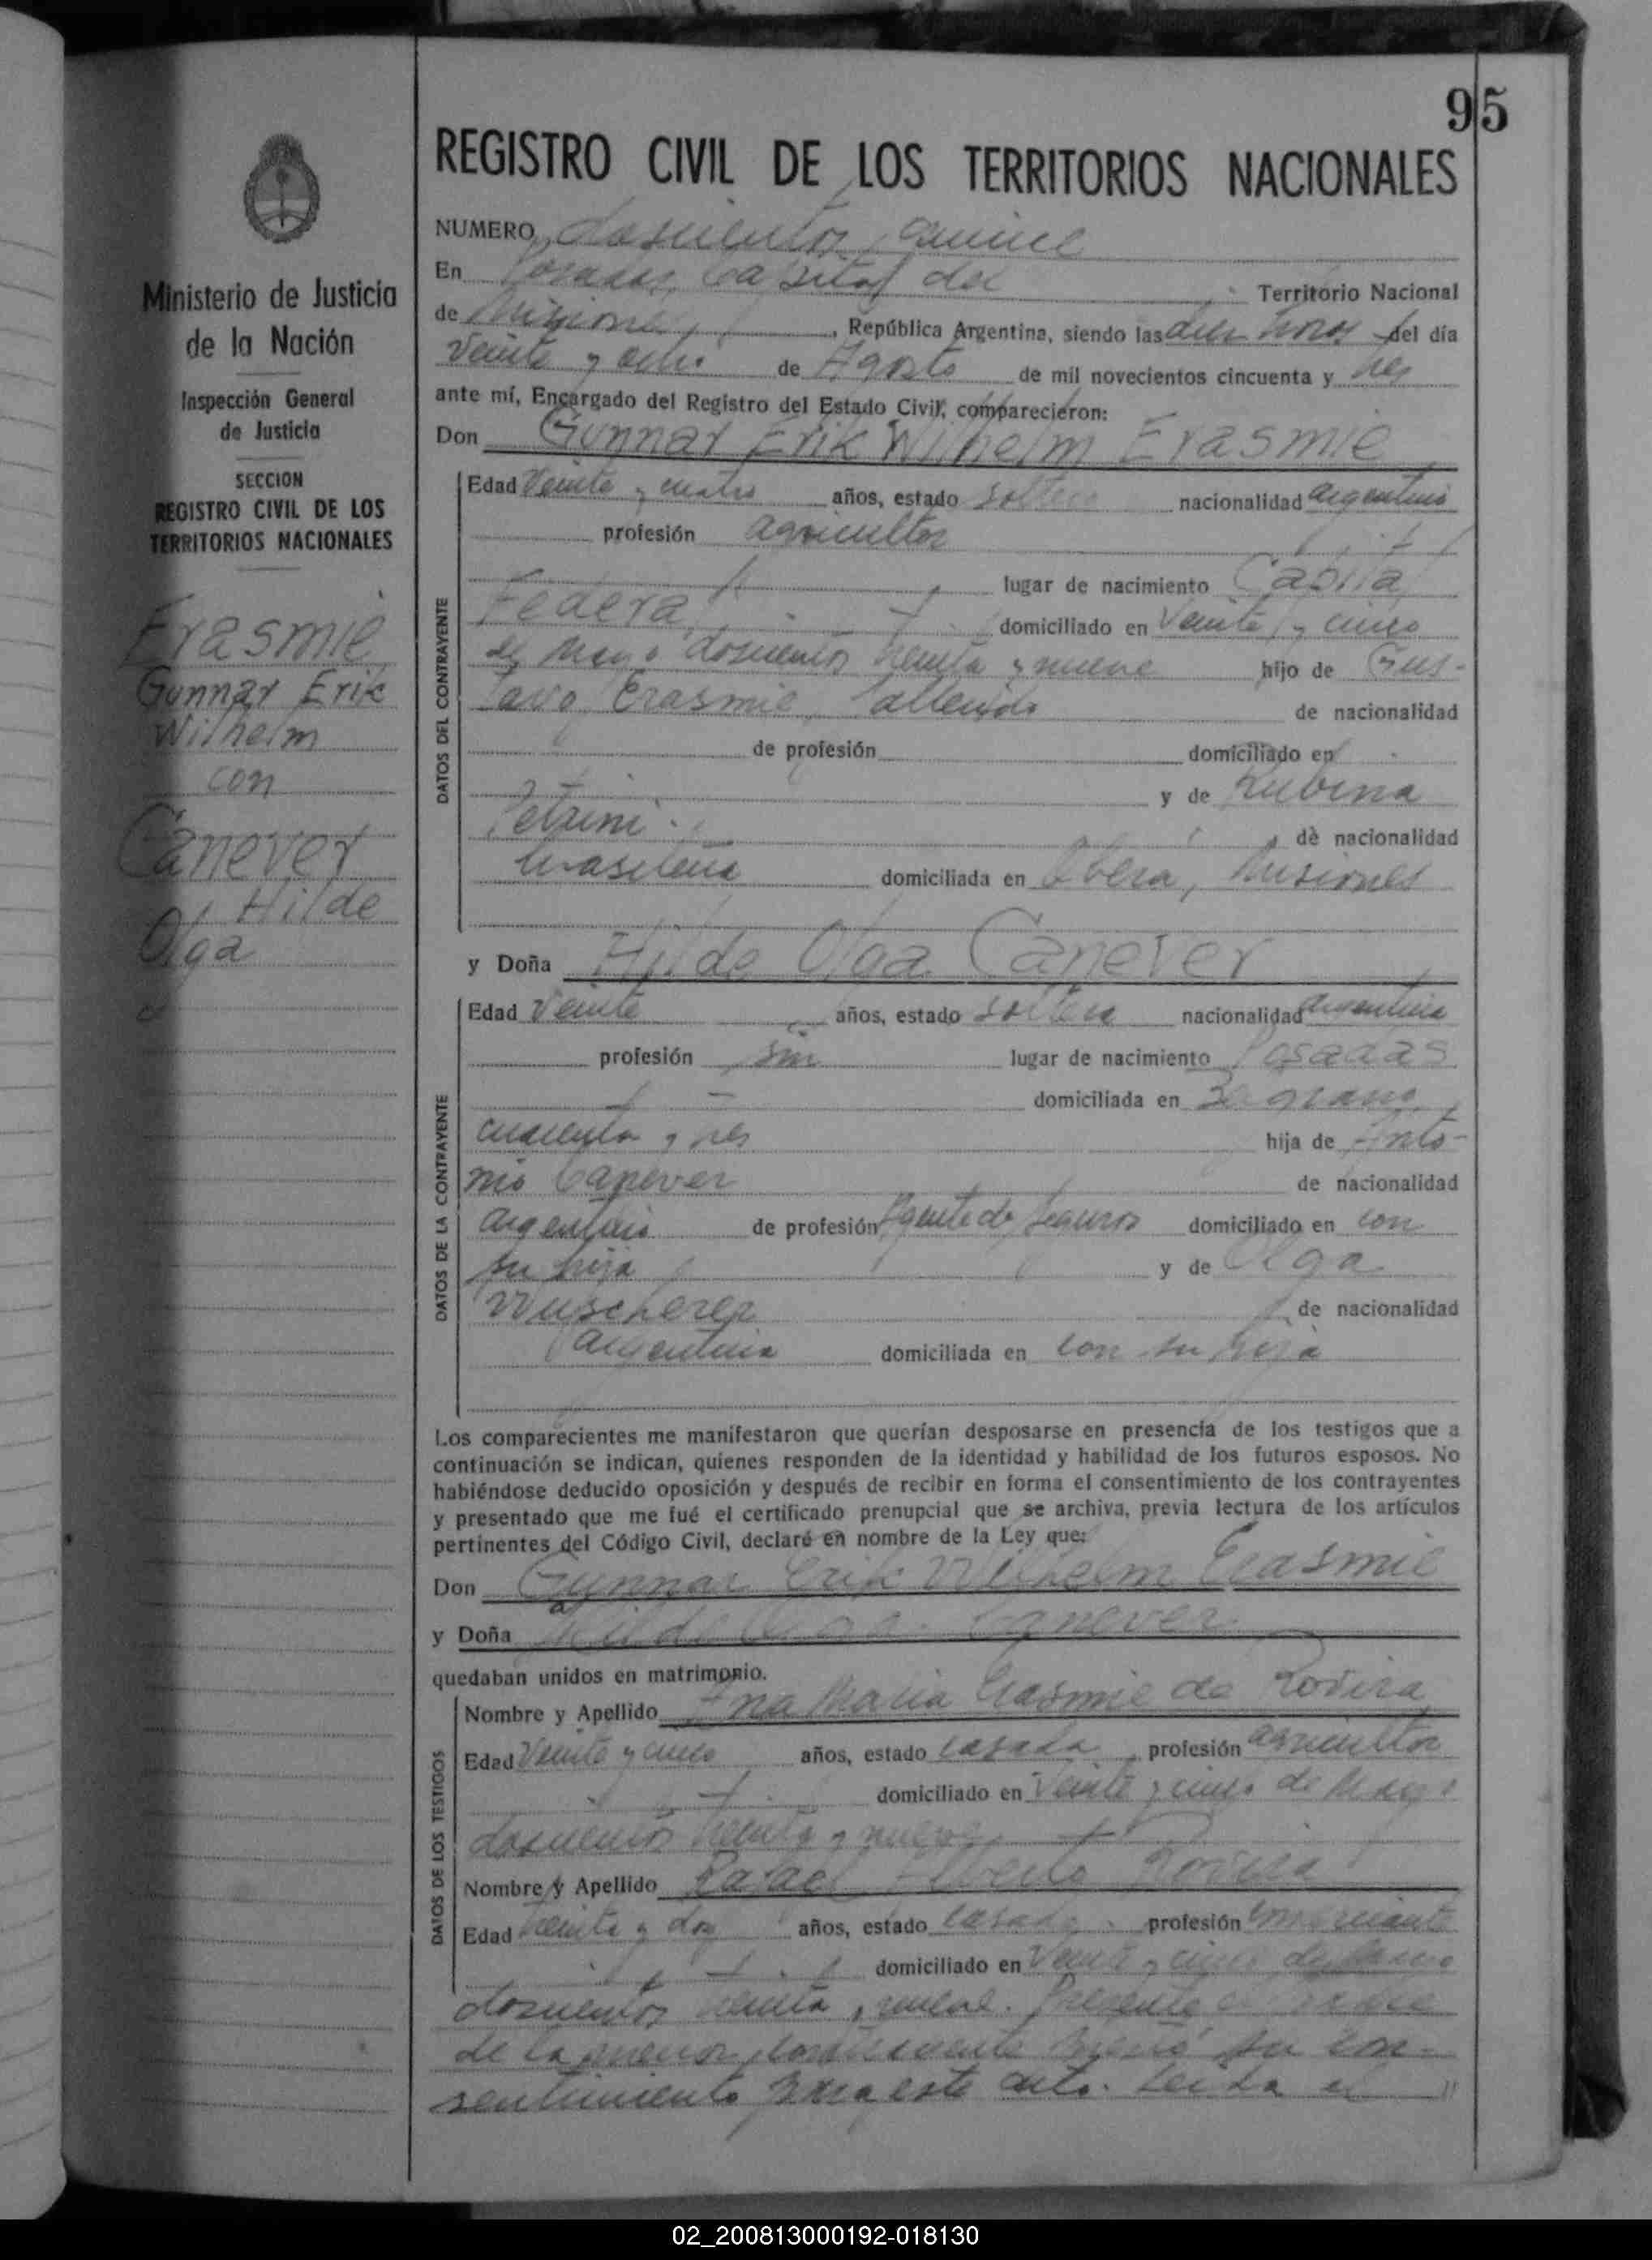 95
REGISTRO CIVIL DE LOS TERRITORIOS NACIONALES
Ministerio de Justicia
de la Nación
Inspección General
de Justicia
SECCION
REGISTRO CIVIL DE LOS
TERRITORIOS NACIONALES
Erasmie
Gunnar Erik
Wilhelm
con
Canever
Hilde
Olga
NUMERO doscientos quince
En Posadas, Capital del Territorio Nacional
de Misiones, República Argentina, siendo las diez horas del día
veinte y ocho de Agosto de mil novecientos cincuenta y tres
ante mí, Encargado del Registro del Estado Civil, comparecieron:
Don Gunnar Erik Wilhelm Erasmie
DATOS DEL CONTRAYENTE
Edad Veinte y cuatro años, estado soltero nacionalidad argentino
profesión agricultor
lugar de nacimiento Capital
Federal domiciliado en Veinte y cinco
de Mayo doscientos treinta y nueve hijo de Gus-
tavo Erasmie, fallecido de nacionalidad
de profesión domiciliado en
y de Rubina
Petrini de nacionalidad
brasileña domiciliada en Oberá, Misiones
y Doña Hilde Olga Canever
DATOS DE LA CONTRAYENTE
Edad Veinte años, estado soltera nacionalidad argentina
profesión sin lugar de nacimiento Posadas
domiciliada en
cuarenta y tres hija de Anto-
nio Canever de nacionalidad
argentino de profesión Agente de Seguros domiciliado en con
su hija y de Olga
Wuscherer de nacionalidad
argentina domiciliada en con su hija
Los comparecientes me manifestaron que querían desposarse en presencia de los testigos que a
continuación se indican, quienes responden de la identidad y habilidad de los futuros esposos. No
habiéndose deducido oposición y después de recibir en forma el consentimiento de los contrayentes
y presentado que me fué el certificado prenupcial que se archiva, previa lectura de los artículos
pertinentes del Código Civil, declaré en nombre de la Ley que:
Don Gunnar Erik Wilhelm Erasmie
y Doña Hilde Olga Canever
quedaban unidos en matrimonio.
DATOS DE LOS TESTIGOS
Nombre y Apellido Ana Maria Erasmie de Rovira
Edad Veinte y cinco años, estado casada profesión agricultor
domiciliado en Veinte y cinco de Mayo
doscientos treinta y nueve
Nombre y Apellido Rafael Alberto Rovira
Edad treinta y dos años, estado casado profesión comerciante
domiciliado en Veinte y cinco de Mayo
doscientos treinta y nueve. Presente el padre
de la menor contrayente prestó su con-
sentimiento para este acto. Leida el
02_200813000192-018130